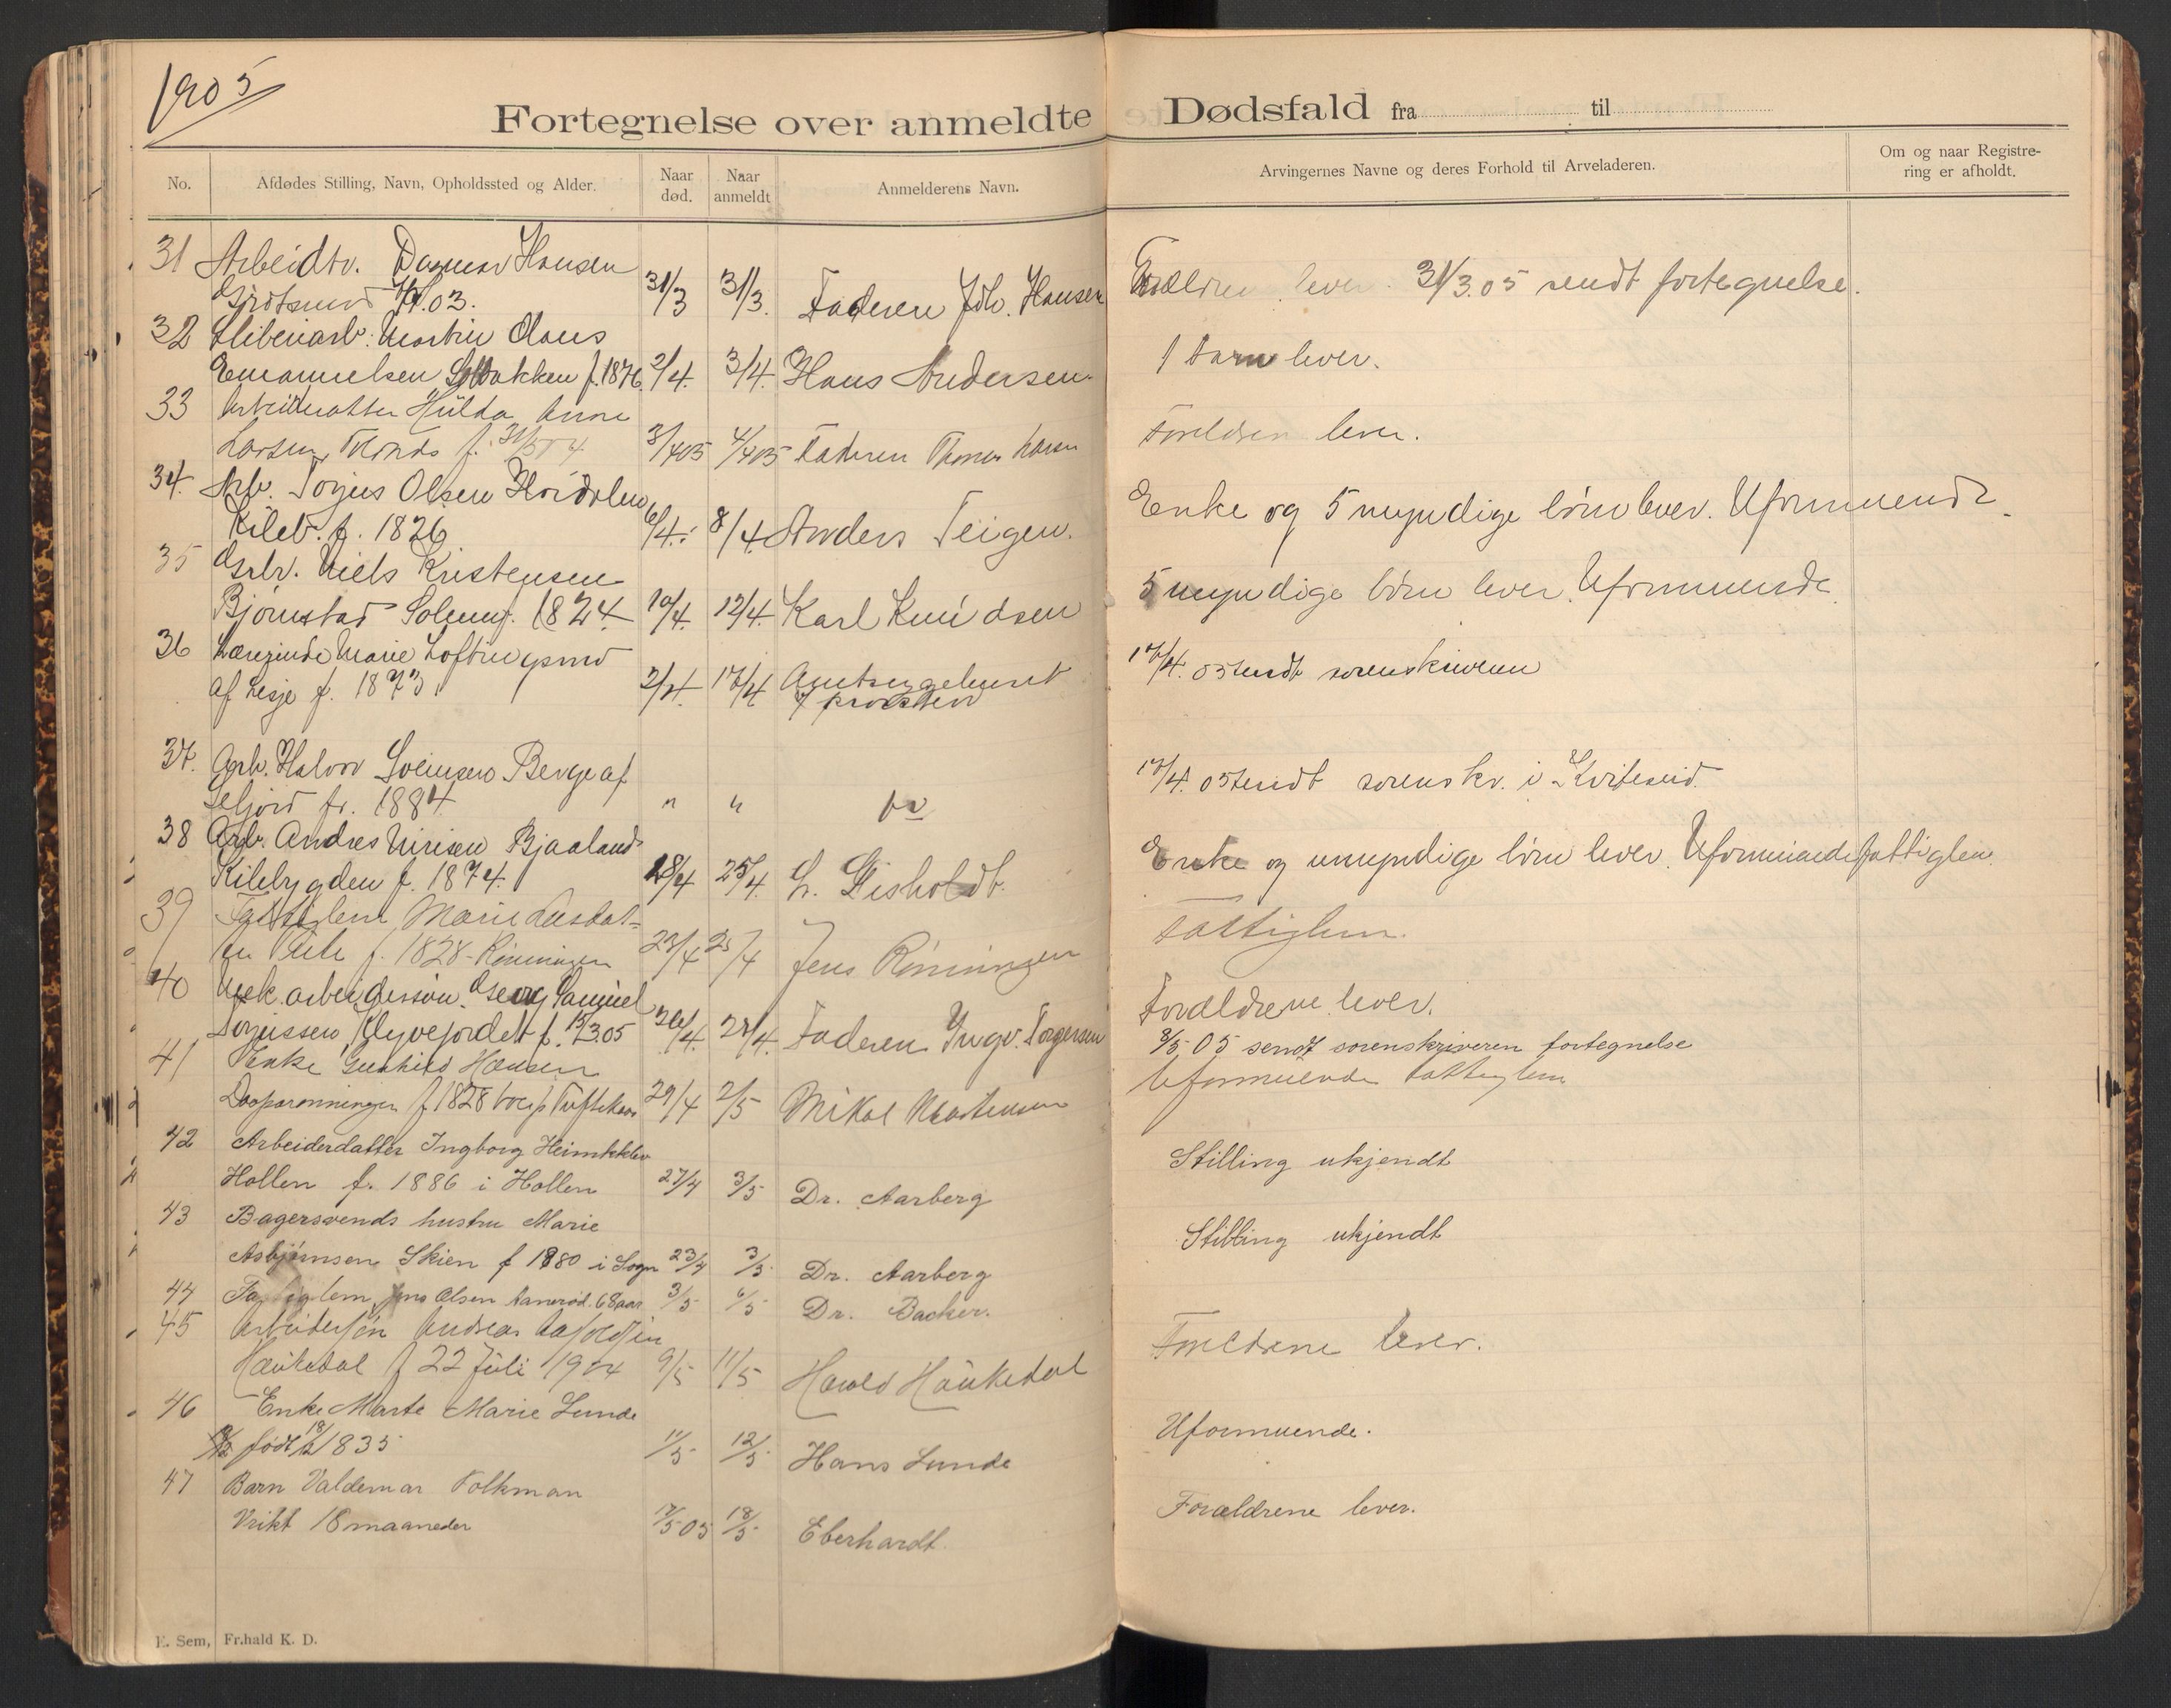 1905
Fortegnelse over anmeldte Dødsfald fra til
No.
Afdødes Stilling, Navn, Opholdssted og Alder.
Naar død.
Naar anmeldt
Anmelderens Navn.
Arvingernes Navne og deres Forhold til Arveladeren.
Om og naar Registrering er afholdt.
31 Arbeidtr. Dagmar Hansen
03. 31/3 31/3. Faderen Joh. Hansen
Forældren lever. 31/3.05 sendt fortegnelse.
32 Sliberiarb. Martin Claus
Emanuelsen f. 1876. 2/4. 3/4. Hans Andersen.
1 barn lever.
33 Arbeiderdatter Hilda Anne
Larsen f. 3/405 4/405 Faderen Thomas Larsen
Forældren lever.
34. Arb. Torjus Olsen
Kileb. f. 1826 6/4. 8/4 Anders Teigen.
Enke og 5 myndige børn lever. Uformuende.
35 Niels Kristensen
Bjørnstad Solum f. 1824. 10/4. 12/4. Karl Knudsen
5 myndige børn lever. Uformuende.
36 Lærerinde Marie
af Lesje f. 1873 2/4. 17/4 Amtsygehuset
17/4. 05 sendt sorenskriveren
37. Arb. Halvor Sveinsen Berge af
Seljord fr. 1884. " "
17/4. 05 sendt sorenskr. i Kviteseid.
38 Arb. Andres Nirisen Bjaaland
Kilebygden f. 1874. 18/4 25/4. L. Gisholdt.
Enke og umyndige børn lever. Uformuende fattiglem.
39 Fattiglem Marie Larsdat-
ter f. 1828 - Rønningen 23/4 25/4 Jens Rønningen
Fattiglem.
40 Mek. arbeidersøn. Georg Samuel
Torjussen Klyvejordet f. 15/3.05 26/4. 28/4. Faderen Ingv. Torgersen
Forældrene lever.
41 Enke Gunhild Hansen
f 1828 29/4 2/5 Mikal Mortensen
8/5 05 sendt sorenskriveren fortegnelse
Uformuende fattiglem
42 Arbeiderdatter Ingborg
Hollen f. 1886 i Hollen 27/4 3/5 Dr. Aarberg
Stilling ukjendt
43 Bagersvends hustru Marie
Asbjørnsen Skien f 1880 i Sogn 23/4 3/5 Dr. Aarberg
Stilling ukjendt
44 Fattiglem Jens Olsen Aanerød. 68 aar 3/5 6/5 Dr. Backer.
45 Arbeidersøn Andreas
Haukedal f 22 Juli 1904 9/5 11/5 Harald Haukedal
Forældrene lever.
46 Enke Marte Marie Lunde
født 18/2 1835 11/5 12/5 Hans Lunde
Uformuende.
47 Barn Valdemar Folkman
Vrikt 18 maaneder 17/5 05 18/5 Eberhardt
Forældrene lever.
E. Sem, Fr.hald K. D.